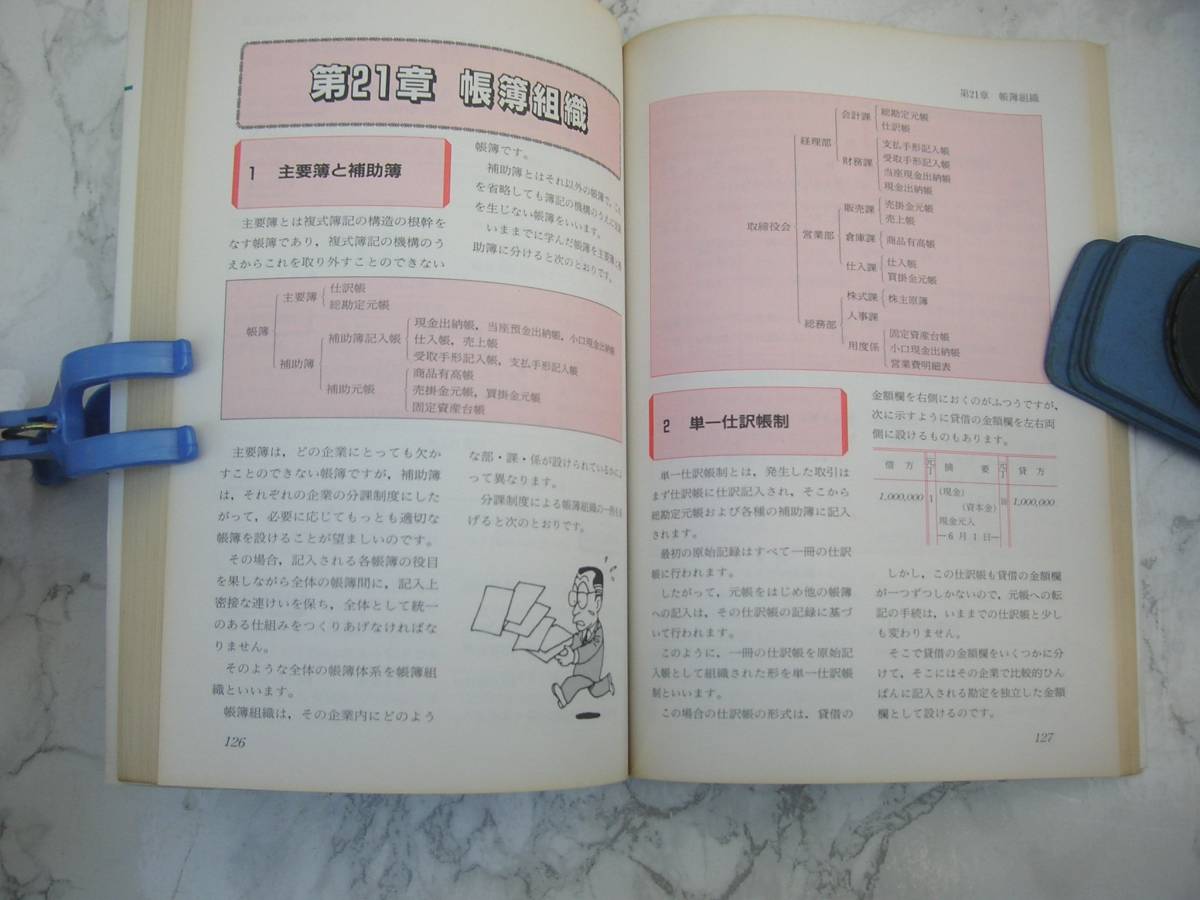 第21章 帳簿組織
1 主要簿と補助簿
主要簿とは複式簿記の構造の根幹を
なす帳簿であり，複式簿記の機構のう
えからこれを取り外すことのできない
帳簿です。
補助簿とはそれ以外の帳簿で，これ
を省略しても簿記の機構のうえに支障
を生じない帳簿をいいます。
いままでに学んだ帳簿を主要簿と補
助簿に分けると次のとおりです。
帳簿
主要簿
仕訳帳
総勘定元帳
補助簿
補助簿記入帳
現金出納帳，当座預金出納帳，小口現金出納帳
仕入帳，売上帳
受取手形記入帳，支払手形記入帳
補助元帳
商品有高帳
売掛金元帳，買掛金元帳
固定資産台帳
主要簿は，どの企業にとっても欠か
すことのできない帳簿ですが，補助簿
は，それぞれの企業の分課制度にした
がって，必要に応じてもっとも適切な
帳簿を設けることが望ましいのです。
その場合，記入される各帳簿の役目
を果しながら全体の帳簿間に，記入上
密接な連けいを保ち，全体として統一
のある仕組みをつくりあげなければな
りません。
そのような全体の帳簿体系を帳簿組
織といいます。
帳簿組織は，その企業内にどのよう
な部・課・係が設けられているかによ
って異なります。
分課制度による帳簿組織の一例を
げると次のとおりです。
126
第21章 帳簿組織
取締役会
経理部
会計課
総勘定元帳
仕訳帳
財務課
支払手形記入帳
受取手形記入帳
当座現金出納帳
現金出納帳
営業部
販売課
売掛金元帳
売上帳
倉庫課
商品有高帳
仕入課
仕入帳
買掛金元帳
総務部
株式課
株主原簿
人事課
用度係
固定資産台帳
小口現金出納帳
営業費明細表
2 単一仕訳帳制
単一仕訳帳制とは，発生した取引は
まず仕訳帳に仕訳記入され，そこから
総勘定元帳および各種の補助簿に記入
されます。
最初の原始記録はすべて一冊の仕訳
帳に行われます。
したがって，元帳をはじめ他の帳簿
への記入は，その仕訳帳の記録に基づ
いて行われます。
このように，一冊の仕訳帳を原始記
入帳として組織された形を単一仕訳帳
制といいます。
この場合の仕訳帳の形式は，貸借の
金額欄を右側におくのがふつうですが，
次に示すように貸借の金額欄を左右両
側に設けるものもあります。
借 方 元丁 摘 要 元丁 貸 方
1,000,000 1 (現金)
(資本金) 1,000,000
現金元入
―6月1日―
しかし，この仕訳帳も貸借の金額欄
が一つずつしかないので，元帳への転
記の手続は，いままでの仕訳帳と少し
も変わりません。
そこで貸借の金額欄をいくつかに分
けて，そこにはその企業で比較的ひん
ぱんに記入される勘定を独立した金額
欄として設けるのです。
127